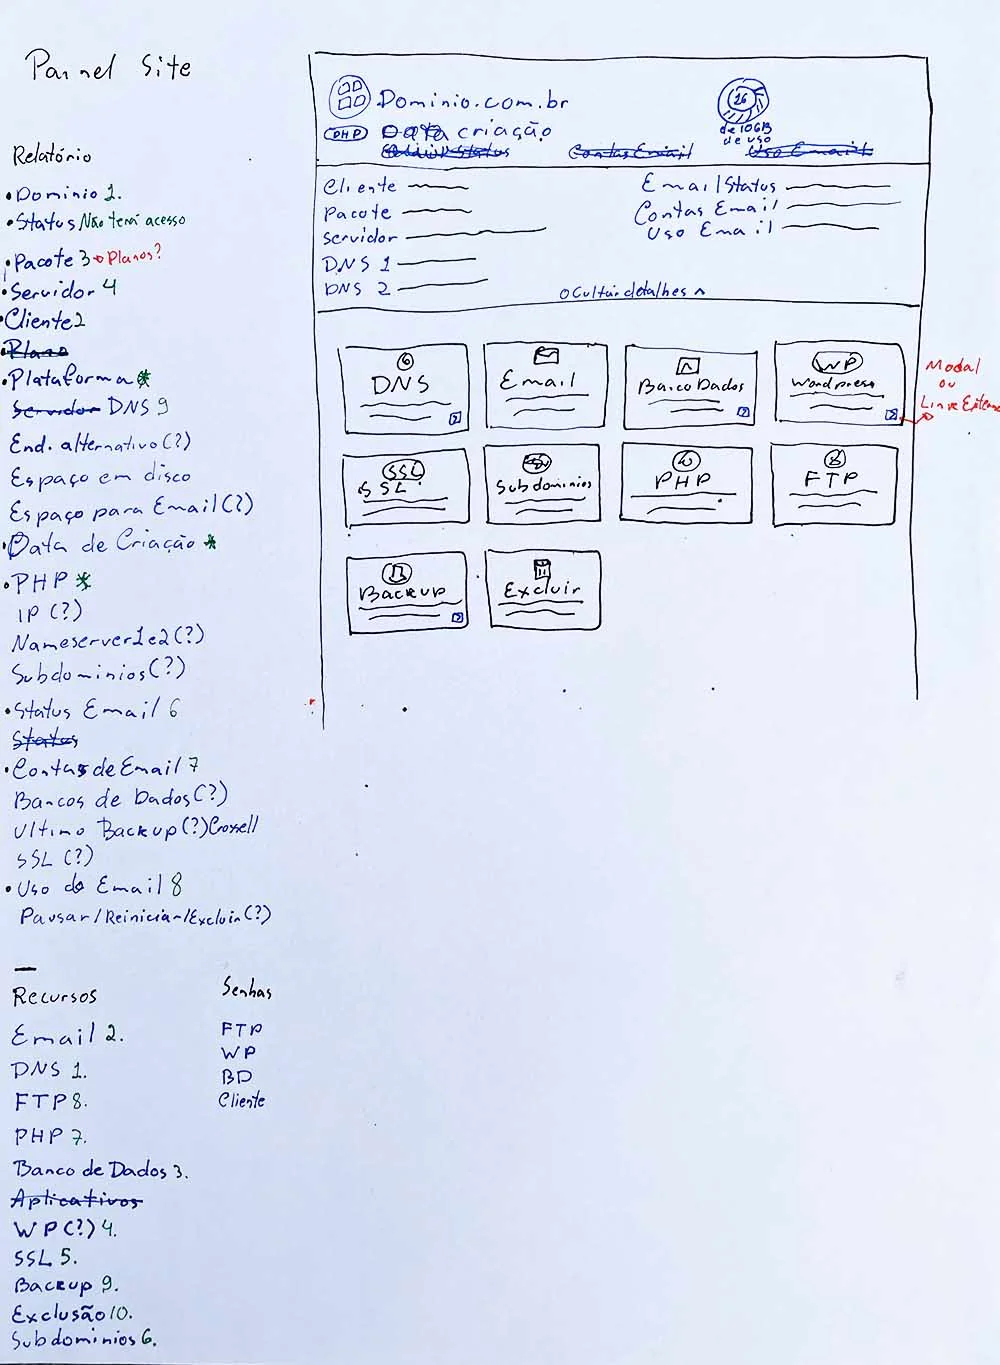 Painel Site
Relatório
• Dominio 1.
• Status Não tem acesso
• Pacote 3 → Planos?
• Servidor 4
• Cliente 2
• Plano
• Plataforma *
Servidor DNS 9
End. alternativo (?)
Espaço em disco
Espaço para Email (?)
• Data de Criação *
• PHP *
IP (?)
Nameserver 1 e 2 (?)
Subdominios (?)
• Status Email 6
Status
• Contas de Email 7
Bancos de Dados (?)
Ultimo Backup (?)
SSL (?)
• Uso do Email 8
Pausar/Reiniciar/Excluir (?)
Recursos
Email 2.
DNS 1.
FTP 8.
PHP 7.
Banco de Dados 3.
Aplicativos
WP (?) 4.
SSL 5.
Backup 9.
Exclusão 10.
Subdominios 6.
Senhas
FTP
WP
BD
Cliente
Dominio.com.br
PHP Data criação
Status
Contas Email
Uso Email
26
de 10GB
de uso
Cliente
Pacote
Servidor
DNS 1
DNS 2
Email Status
Contas Email
Uso Email
Ocultar detalhes ^
DNS
Email
Banco Dados
WP
Wordpress
Modal
ou
Link Externo
SSL
SSL
Subdominios
PHP
FTP
Backup
Excluir